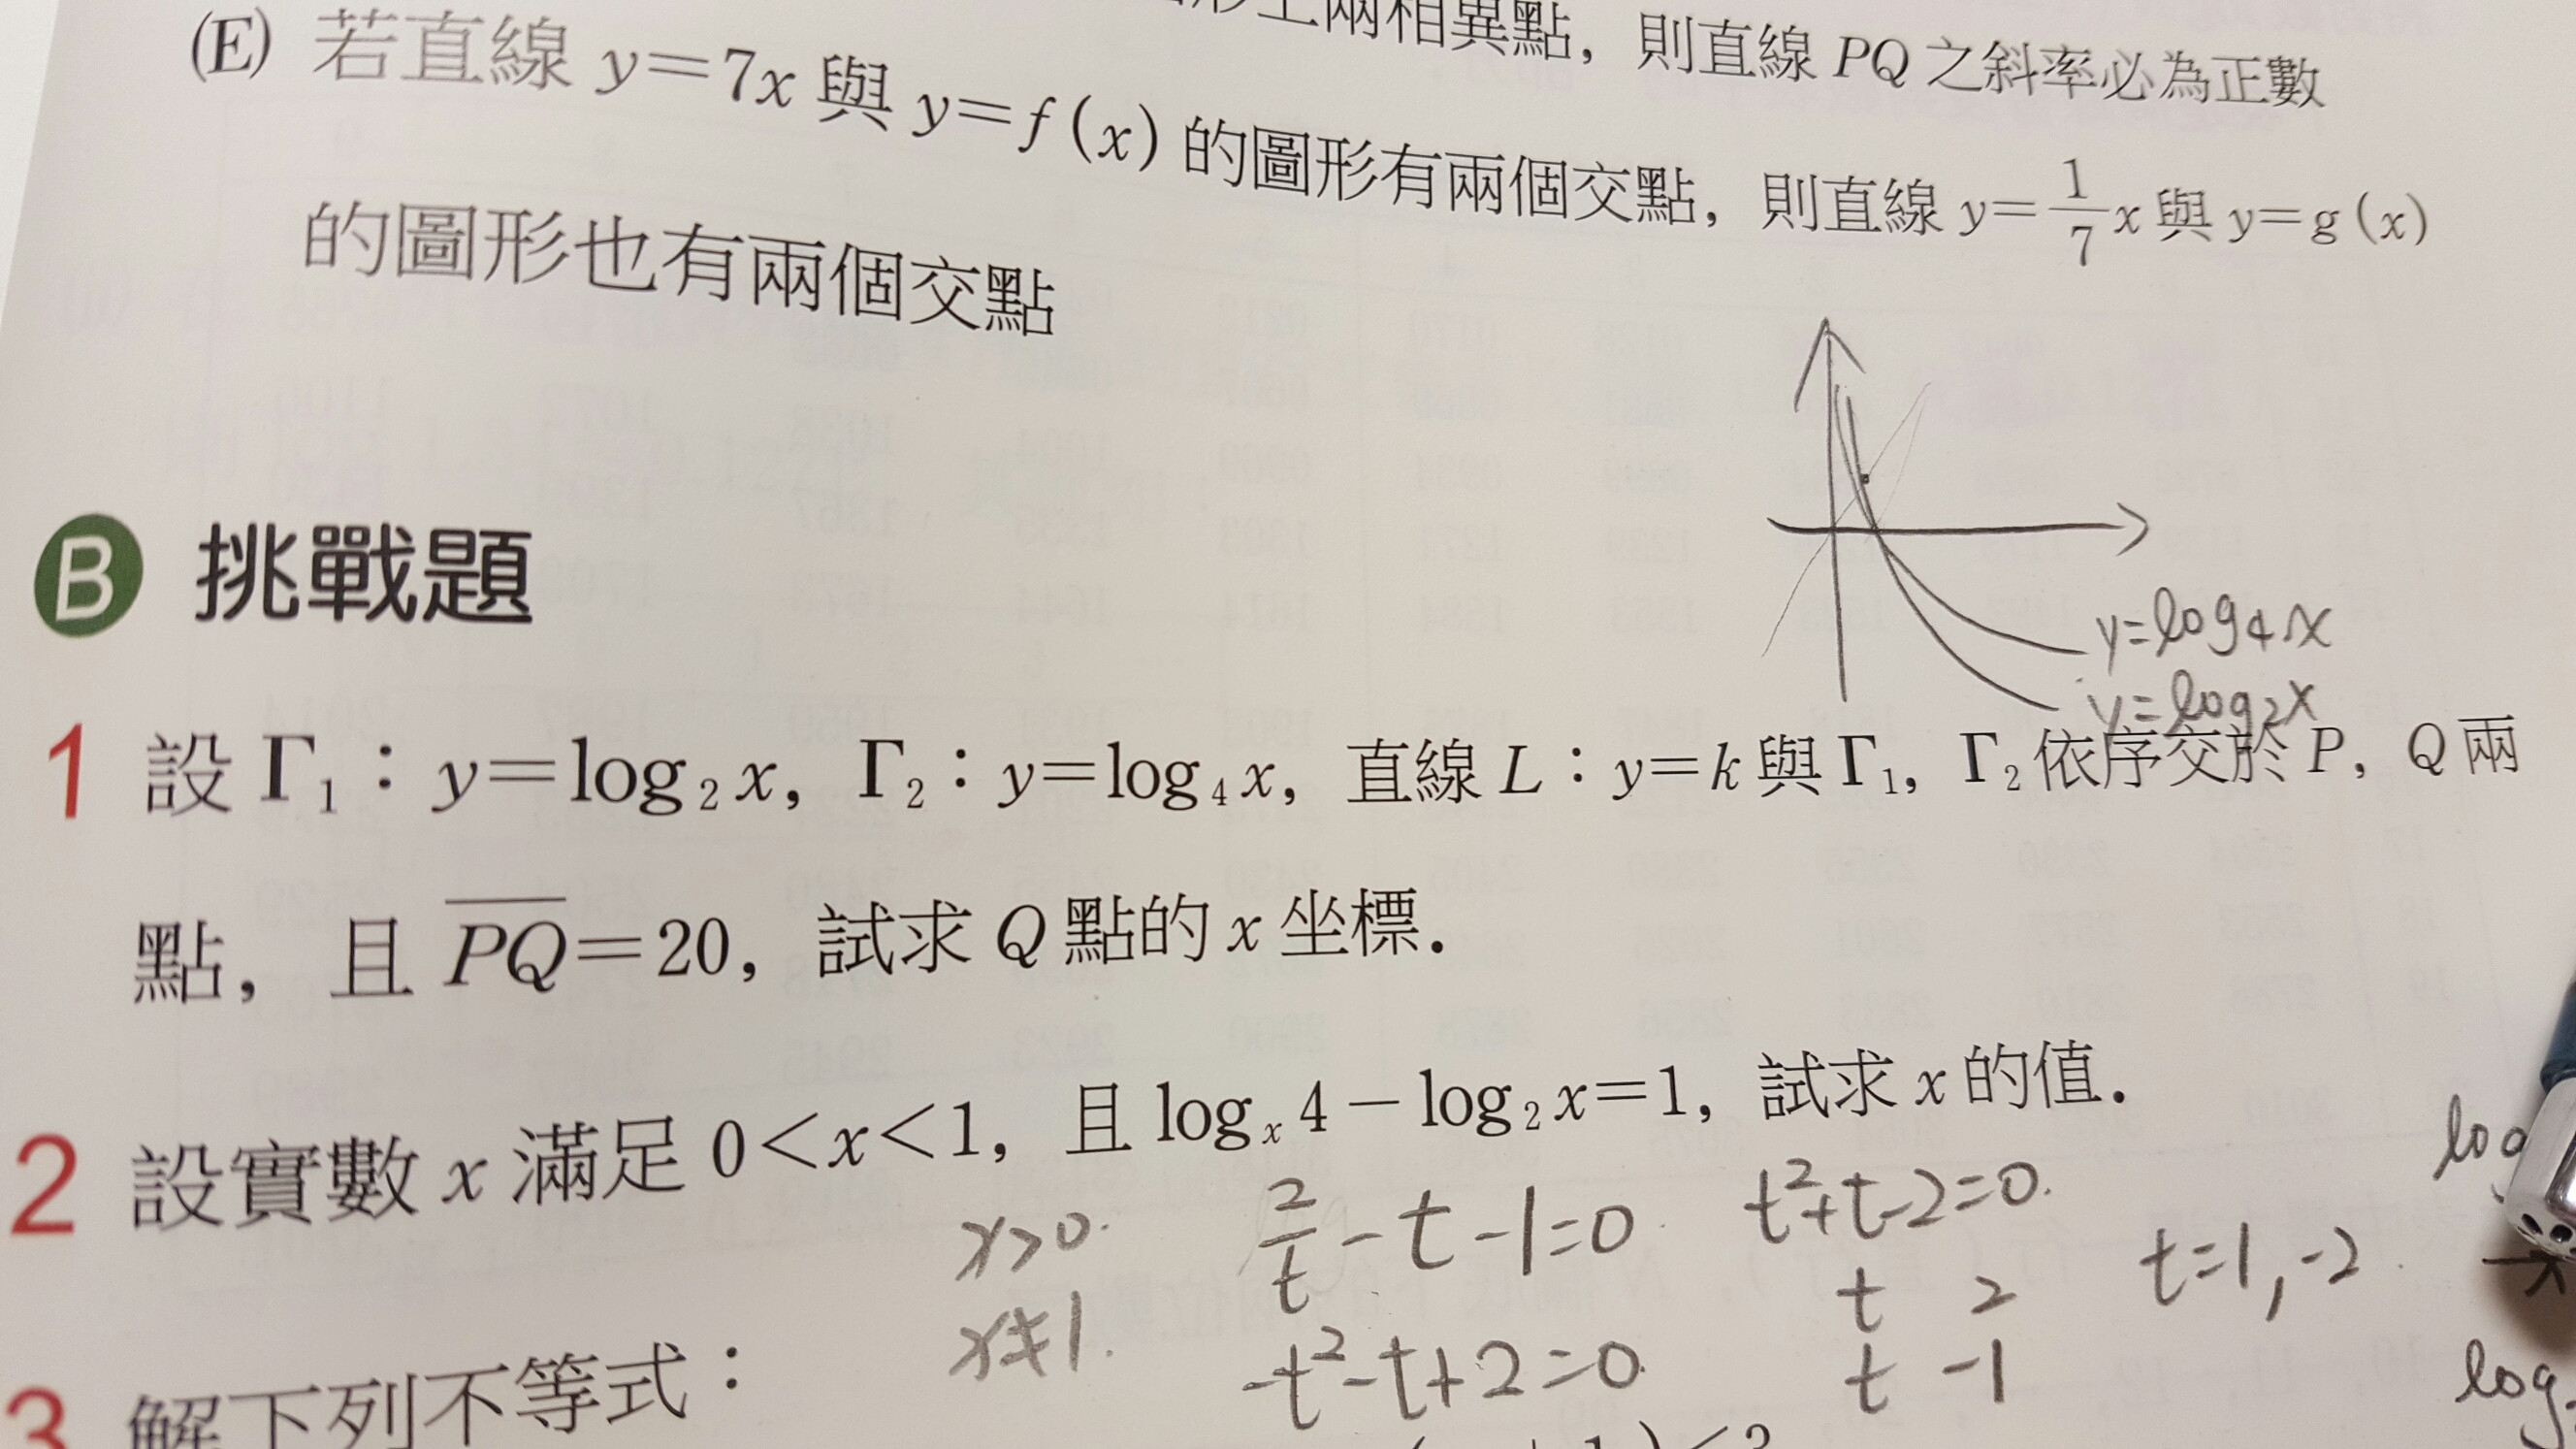 兩相異點，則直線 PQ 之斜率必為正數
(E) 若直線 y=7x 與 y=f(x) 的圖形有兩個交點，則直線 y=1/7x 與 y=g(x)
的圖形也有兩個交點
B 挑戰題
y=log₄x
y=log₂x
1 設 Γ₁：y=log₂x，Γ₂：y=log₄x，直線 L：y=k 與 Γ₁，Γ₂ 依序交於 P，Q 兩
點，且 P̅Q̅=20，試求 Q 點的 x 坐標．
2 設實數 x 滿足 0<x<1，且 logₓ4－log₂x=1，試求 x 的值．
x>0. 2/t-t-1=0. t²+t-2=0. log
t 2 t=1,-2.
x≠1. -t²-t+2=0. t -1 log
3 解下列不等式：